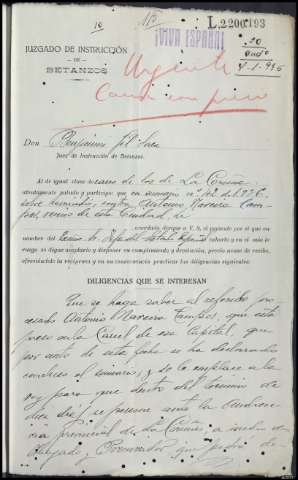 L.2200/193
¡VIVA ESPAÑA!
JUZGADO DE INSTRUCCIÓN
DE
BETANZOS
Urgente
Causa con preso
Don Benjamín Gil Saez
Juez de Instrucción de Betanzos.
Al de igual clase decano de los de La Coruña
atentamente saludo y participo: que en sumario nº 142 de 1936
sobre homicidio, contra Antonio Naveira Cam-
pos, vecino de esta Ciudad, he
acordado dirigir a V. S. el presente por el que en
nombre del Excmo. Sr. Jefe del Estado Español saludo y en el mío le
ruego se digne aceptarlo y disponer su cumplimiento y devolución, previo acuse de recibo,
ofreciéndole la recíproca y en su consecuencia practicar las diligencias siguientes:
DILIGENCIAS QUE SE INTERESAN
Que se haga saber al referido pro-
cesado Antonio Naveira Campos, que está
preso en la Carcel de esa Capital, que
por auto de esta fecha se ha declarado
concluso el sumario, y se le emplace a la
vez para que dentro del termino de
diez dias, se persone ante la Audien-
cia provincial de La Coruña, a medio de
Abogado y Procurador que podrá de-